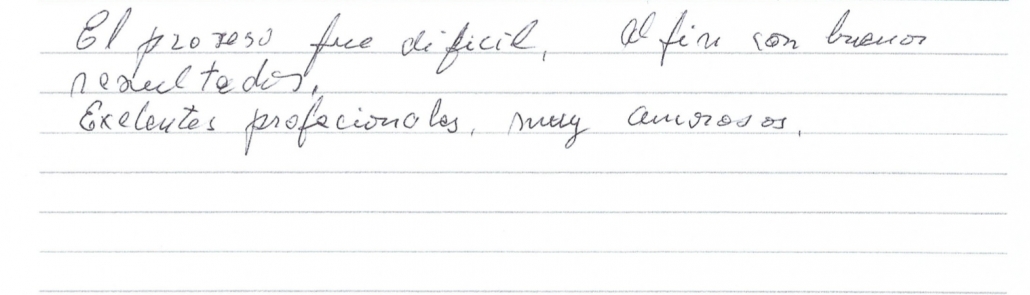 El proreso fue dificil, al fin con buenos
resultados.
Exelentes profecionales, muy amorosos.